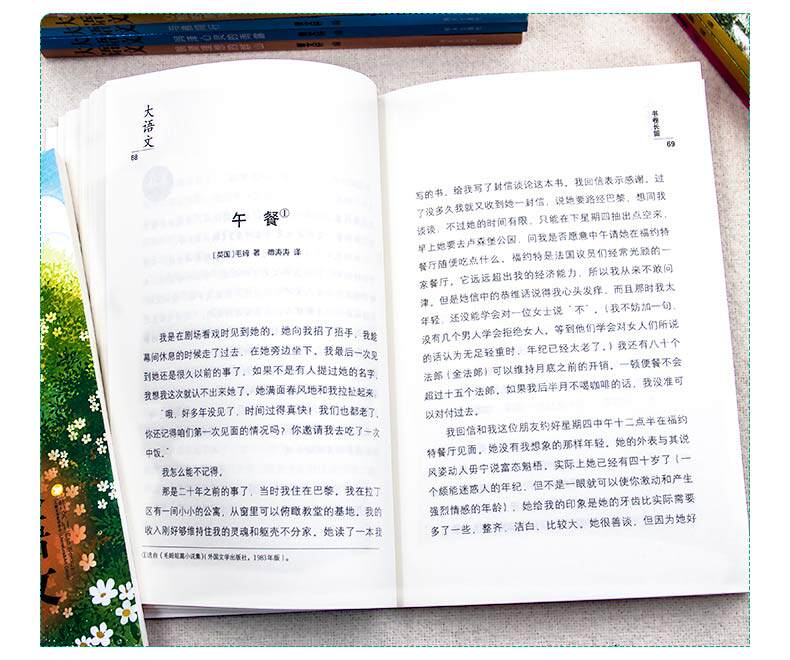 大语文
68
午 餐①
[英国]毛姆 著 傅涛涛 译
我是在剧场看戏时见到她的。她向我招了招手，我趁
幕间休息的时候走了过去，在她旁边坐下。我最后一次见
到她还是很久以前的事了，如果不是有人提过她的名字，
我想我这次就认不出来她了。她满面春风地和我拉扯起来。
“哦，好多年没见了，时间过得真快！我们也都老了，
你还记得咱们第一次见面的情况吗？你邀请我去吃了一次
中饭。”
我怎么能不记得。
那是二十年之前的事了，当时我住在巴黎。我在拉丁
区有一间小小的公寓，从窗里可以俯瞰教堂的墓地。我的
收入刚好够维持住我的灵魂和躯壳不分家。她读了一本我
①选自《毛姆短篇小说集》（外国文学出版社，1983年版）。
书卷长留
69
写的书，给我写了封信谈论这本书。我回信表示感谢。过
了没多久我就又收到她一封信，说她要路经巴黎，想同我
谈谈，不过她的时间有限，只能在下星期四抽出点空来，
早上她要去卢森堡公园，问我是否愿意中午请她在福约特
餐厅随便吃点什么。福约特是法国议员们经常光顾的一
家餐厅，它远远超出我的经济能力，所以我从来不敢问
津。但是她信中的恭维话说得我心头发痒，而且那时我太
年轻，还没能学会对一位女士说“不”。（我不妨加一句，
没有几个男人学会拒绝女人，等到他们学会对女人们所说
的话认为无足轻重时，年纪已经太老了。）我还有八十个
法郎（金法郎）可以维持月底之前的开销，一顿便餐不会
超过十五个法郎。如果我后半月不喝咖啡的话，我没准可
以对付过去。
我回信和我这位朋友约好星期四中午十二点半在福约
特餐厅见面。她没有我想象的那样年轻。她的外表与其说
风姿动人毋宁说富态魁梧。实际上她已经有四十岁了（一
个颇能迷惑人的年纪，但不是一眼就可以使你激动和产生
强烈情感的年龄），她给我的印象是她的牙齿比实际需要
多了一些，整齐、洁白、比较大。她很善谈，但因为她好